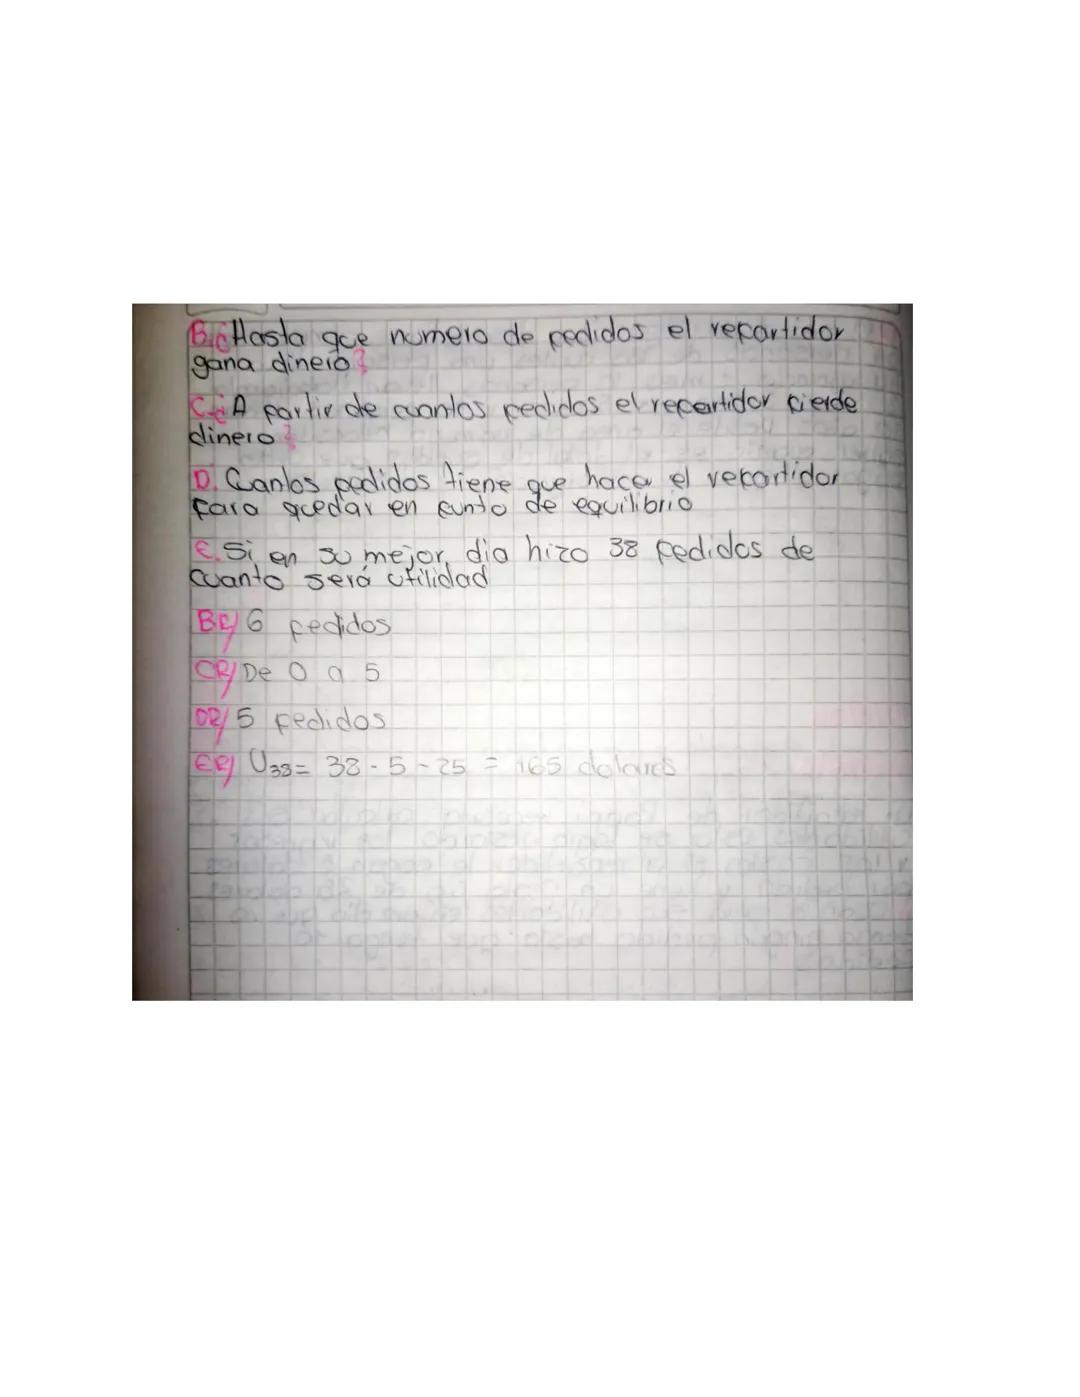 B. ¿Hasta que numero de pedidos el repartidor
gana dinero?
C. ¿A partir de cuantos pedidos el repartidor pierde
dinero?
D. Cuantos pedidos tiene que hacer el repartidor
para quedar en punto de equilibrio
E. Si en su mejor dia hizo 38 pedidos de
cuanto será utilidad
BR/ 6 pedidos
CR/ De 0 a 5
DR/ 5 pedidos
ER/ U38= 38 · 5 - 25 = 165 dolares